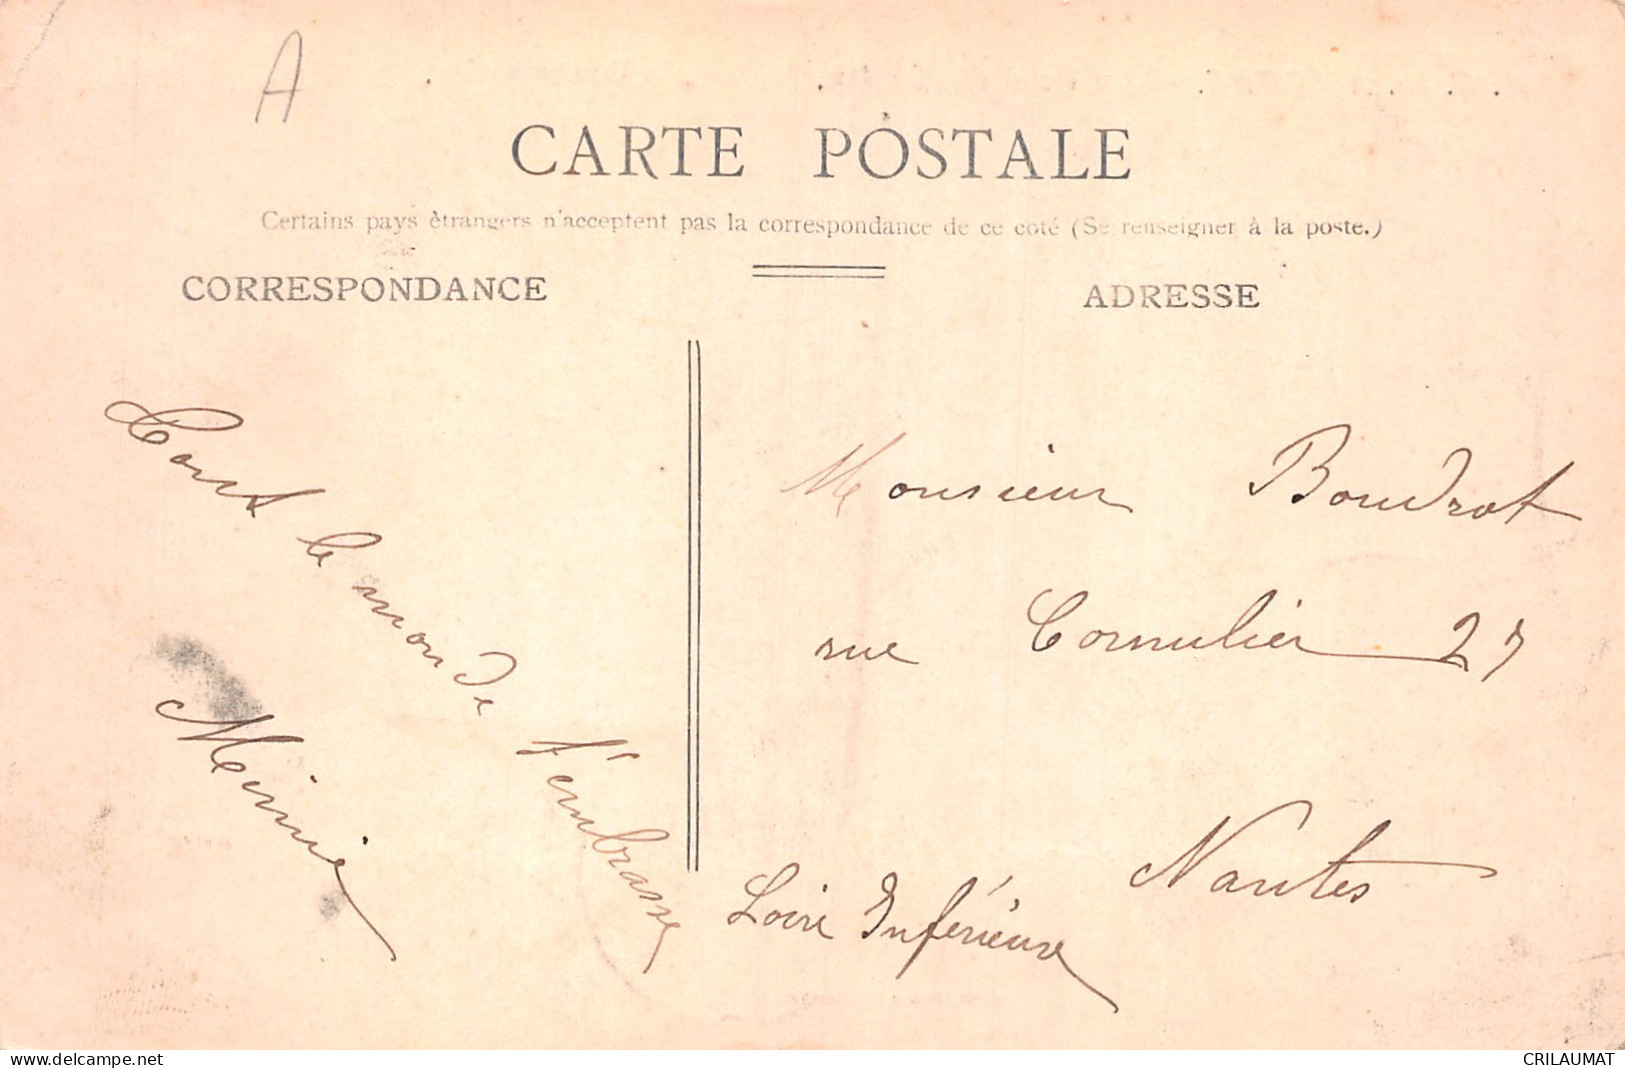 A
CARTE POSTALE
Certains pays ètrangers n'acceptent pas la correspondance de ce coté (Se renseigner à la poste.)
CORRESPONDANCE
ADRESSE
Tout le monde t'embrasse
Mimie
Monsieur Boudrot
rue Cornulier 27
Nantes
Loire Inférieure
delcampe.net
CRILAUMAT